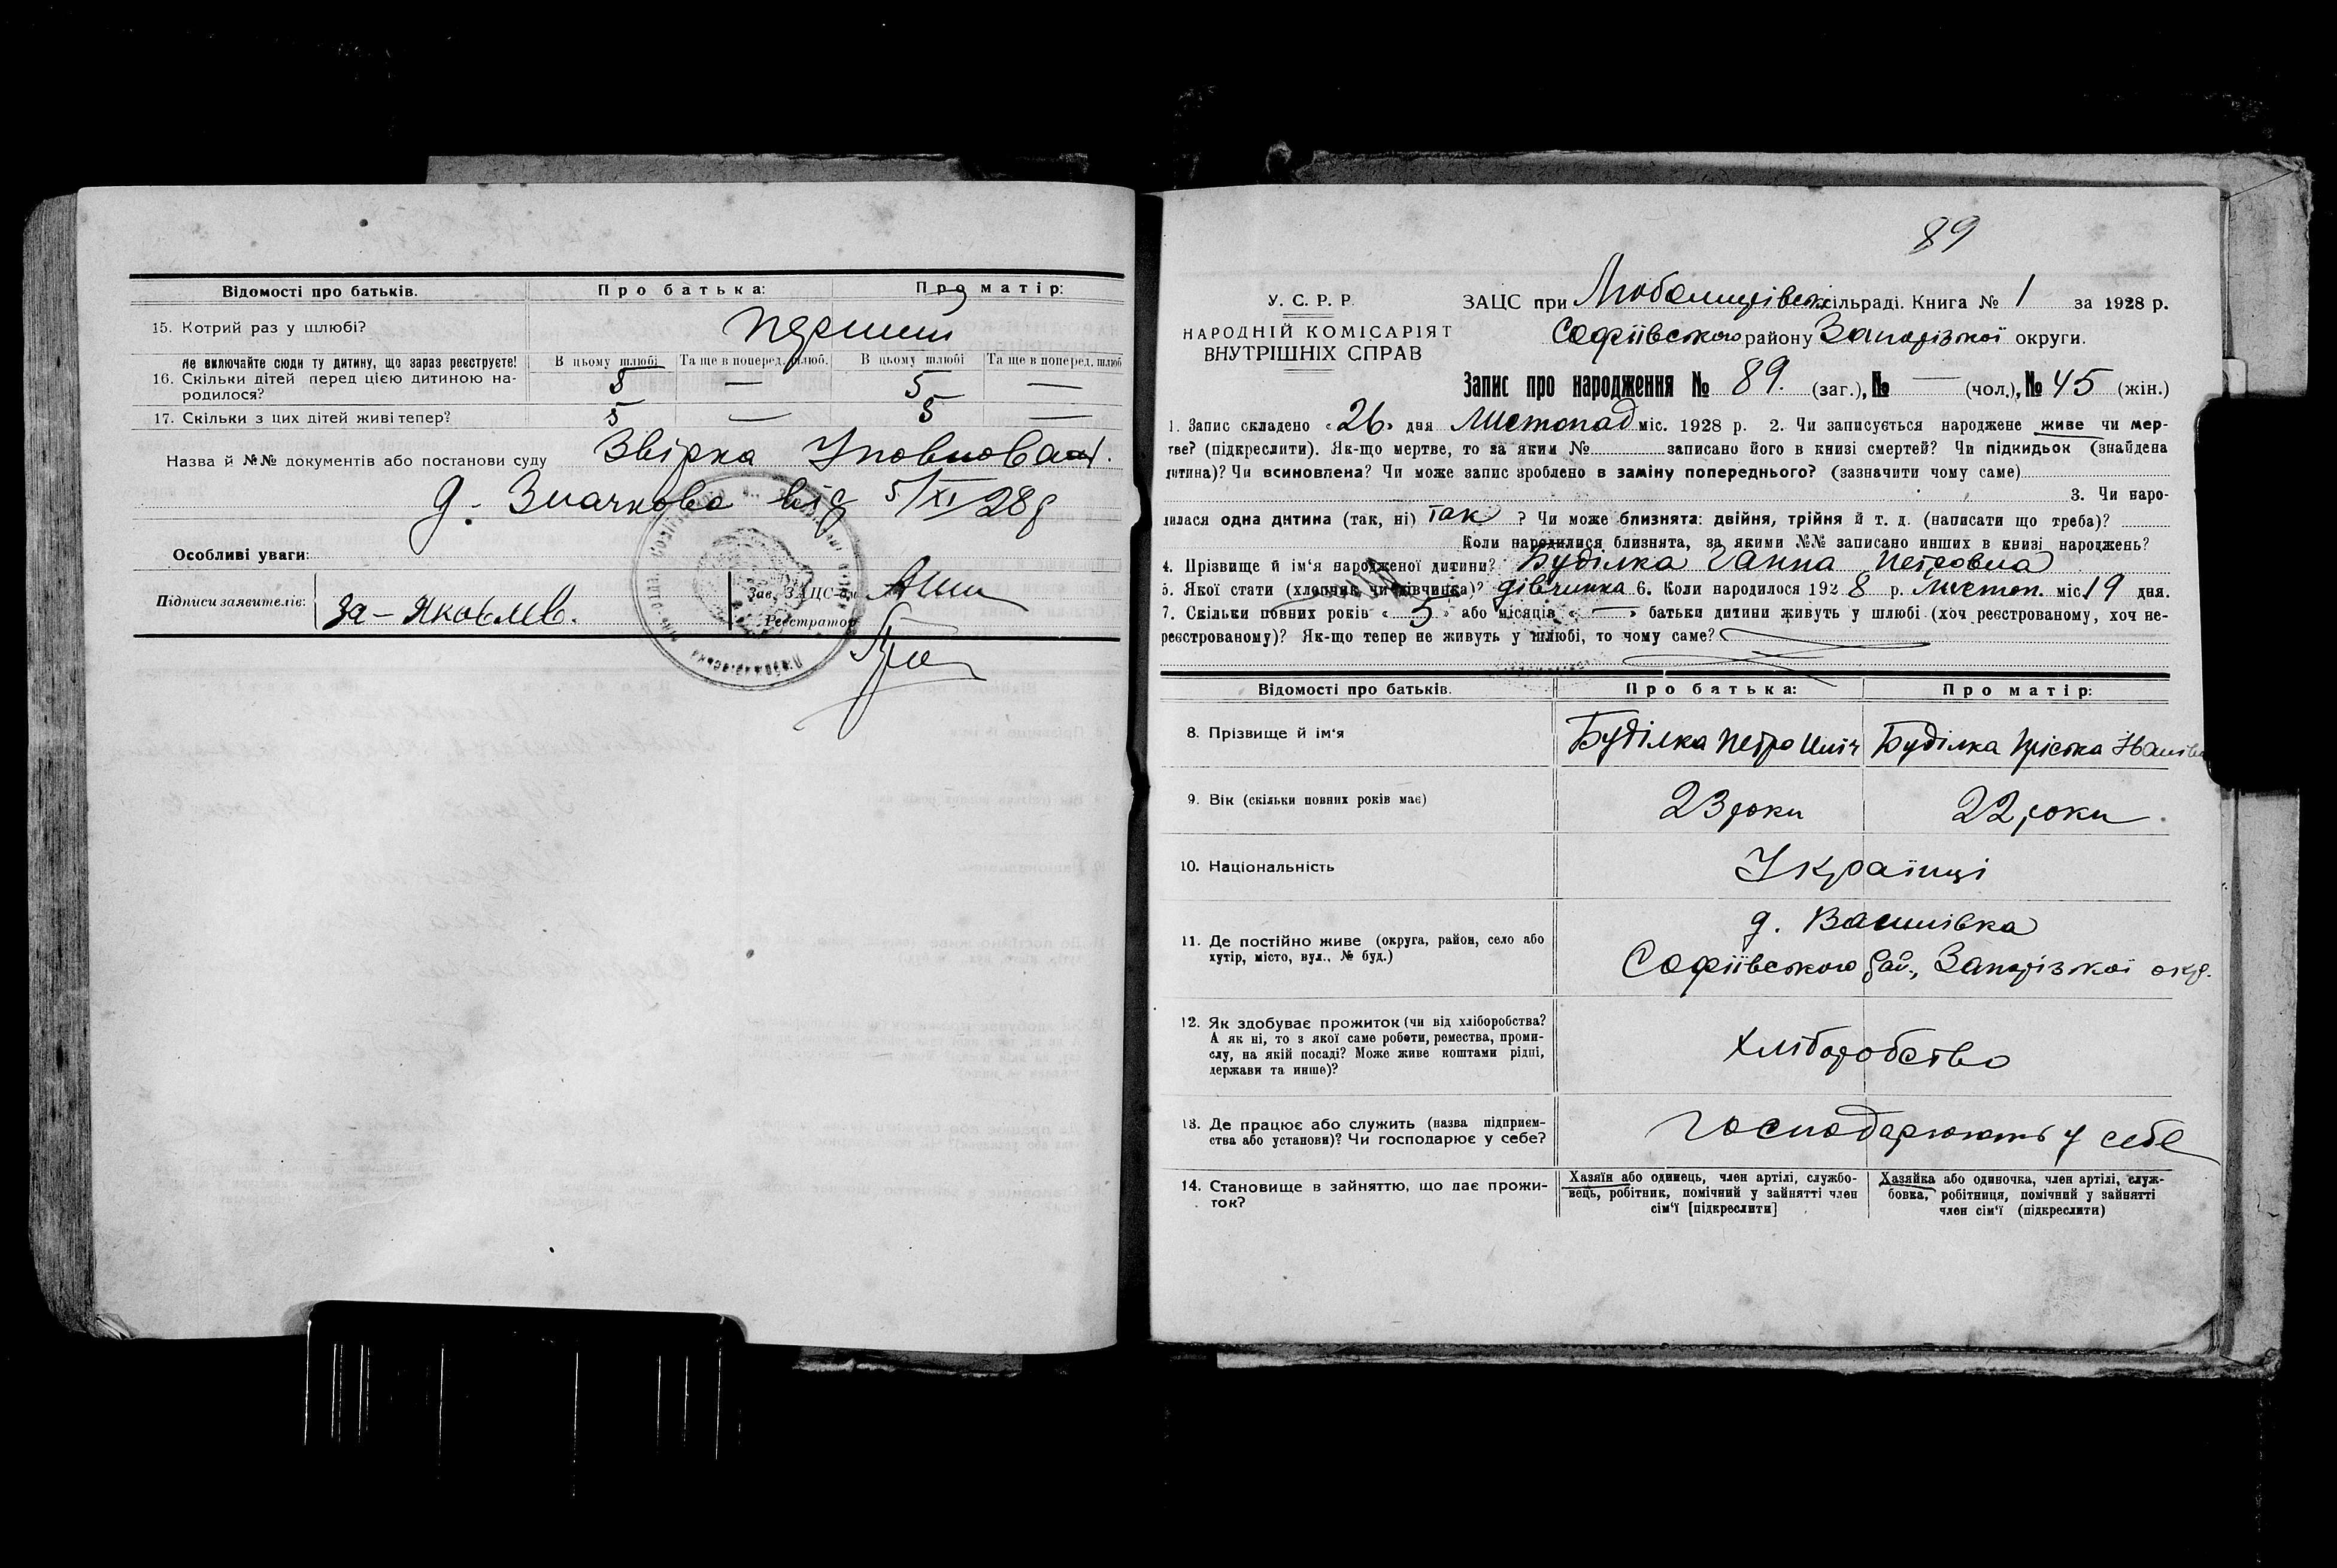 Відомості про батьків. Про батька: Про матір:
15. Котрий раз у шлюбі? перший
Не включайте сюди ту дитину, що зараз реєструєте! В цьому шлюбі Та ще в поперед. шлюб. В цьому шлюбі Та ще в поперед. шлюб
16. Скільки дітей перед цією дитиною на-
родилося? 5 — 5 —
17. Скільки з цих дітей живі тепер? 5 — 5 —
Назва й №№ документів або постанови суду Звірка Уповноваж.
д. Значкова від 5/XI 28 р
Особливі уваги:
Підписи заявителів: За - Яковлєв. Зав. ЗАЦС-ом
Реєстратор
89
У. С. Р. Р.
НАРОДНІЙ КОМІСАРІЯТ
ВНУТРІШНІХ СПРАВ
ЗАЦС при сільраді. Книга № 1 за 1928 р.
Софіївського району Запорізької округи.
Запис про народження № 89. (заг.), № — (чол.), № 45 (жін.)
1. Запис складено «26» дня Листопад міс. 1928 р. 2. Чи записується народжене живе чи мер-
тве? (підкреслити). Як-що мертве, то за яким № записано його в книзі смертей? Чи підкидьок (знайдена
дитина)? Чи всиновлена? Чи може запис зроблено в заміну попереднього? (зазначити чому саме)
3. Чи наро-
дилася одна дитина (так, ні) так ? Чи може близнята: двійня, трійня й т. д. (написати що треба)?
Коли народилися близнята, за якими №№ записано инших в книзі народжень?
4. Прізвище й ім'я народженої дитини? Буділка Ганна Петровна
5. Якої стати (хлопчик чи дівчинка)? дівчинка 6. Коли народилося 1928 р. листоп. міс. 19 дня.
7. Скільки повних років «5» або місяців «—» батьки дитини живуть у шлюбі (хоч реєстрованому, хоч не-
реєстрованому)? Як-що тепер не живуть у шлюбі, то чому саме?
Відомості про батьків. Про батька: Про матір:
8. Прізвище й ім'я Буділка Петро Буділка Пріська Іванівн
9. Вік (скільки повних років має) 23 роки 22 роки
10. Національність Українці
11. Де постійно живе (округа, район, село або
хутір, місто, вул., № буд.)
д. Василівка
Софіївського рай., Запорізької окр.
12. Як здобуває прожиток (чи від хліборобства?
А як ні, то з якої саме роботи, ремества, проми-
слу, на якій посаді? Може живе коштами рідні,
держави та инше)?
Хліборобство
13. Де працює або служить (назва підприєм-
ства або установи)? Чи господарює у себе?
господарюють у себе
14. Становище в зайняттю, що дає прожи-
ток?
Хазяїн або одинець, член артілі, службо-
вець, робітник, помічний у зайнятті член
сім'ї [підкреслити]
Хазяйка або одиночка, член артілі, служ-
бовка, робітниця, помічний у зайнятті
член сім'ї (підкреслити)